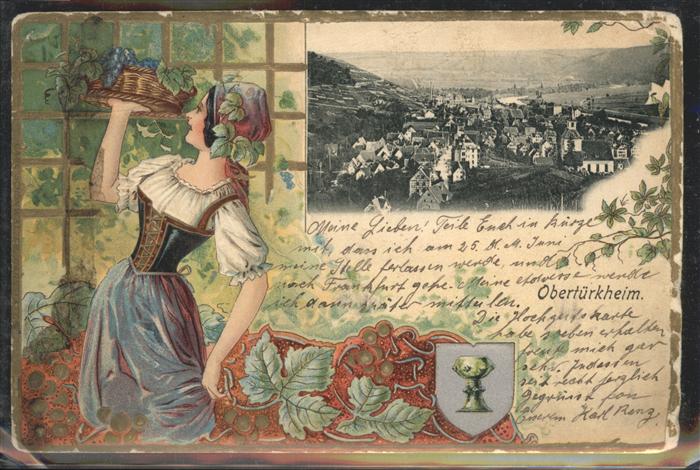 Meine Lieben! Teile Euch in Kürze
mit, dass ich am 25. d. M. Juni
meine Stelle verlassen werde und
nach Frankfurt gehe. Meine Adresse werde
ich dann später mitteilen.
Obertürkheim.
Die Hochzeitskarte
habe soeben erhalten
freut mich gar
sehr. Indessen
seid recht herzlich
Gegrüsst von
Karl Renz.